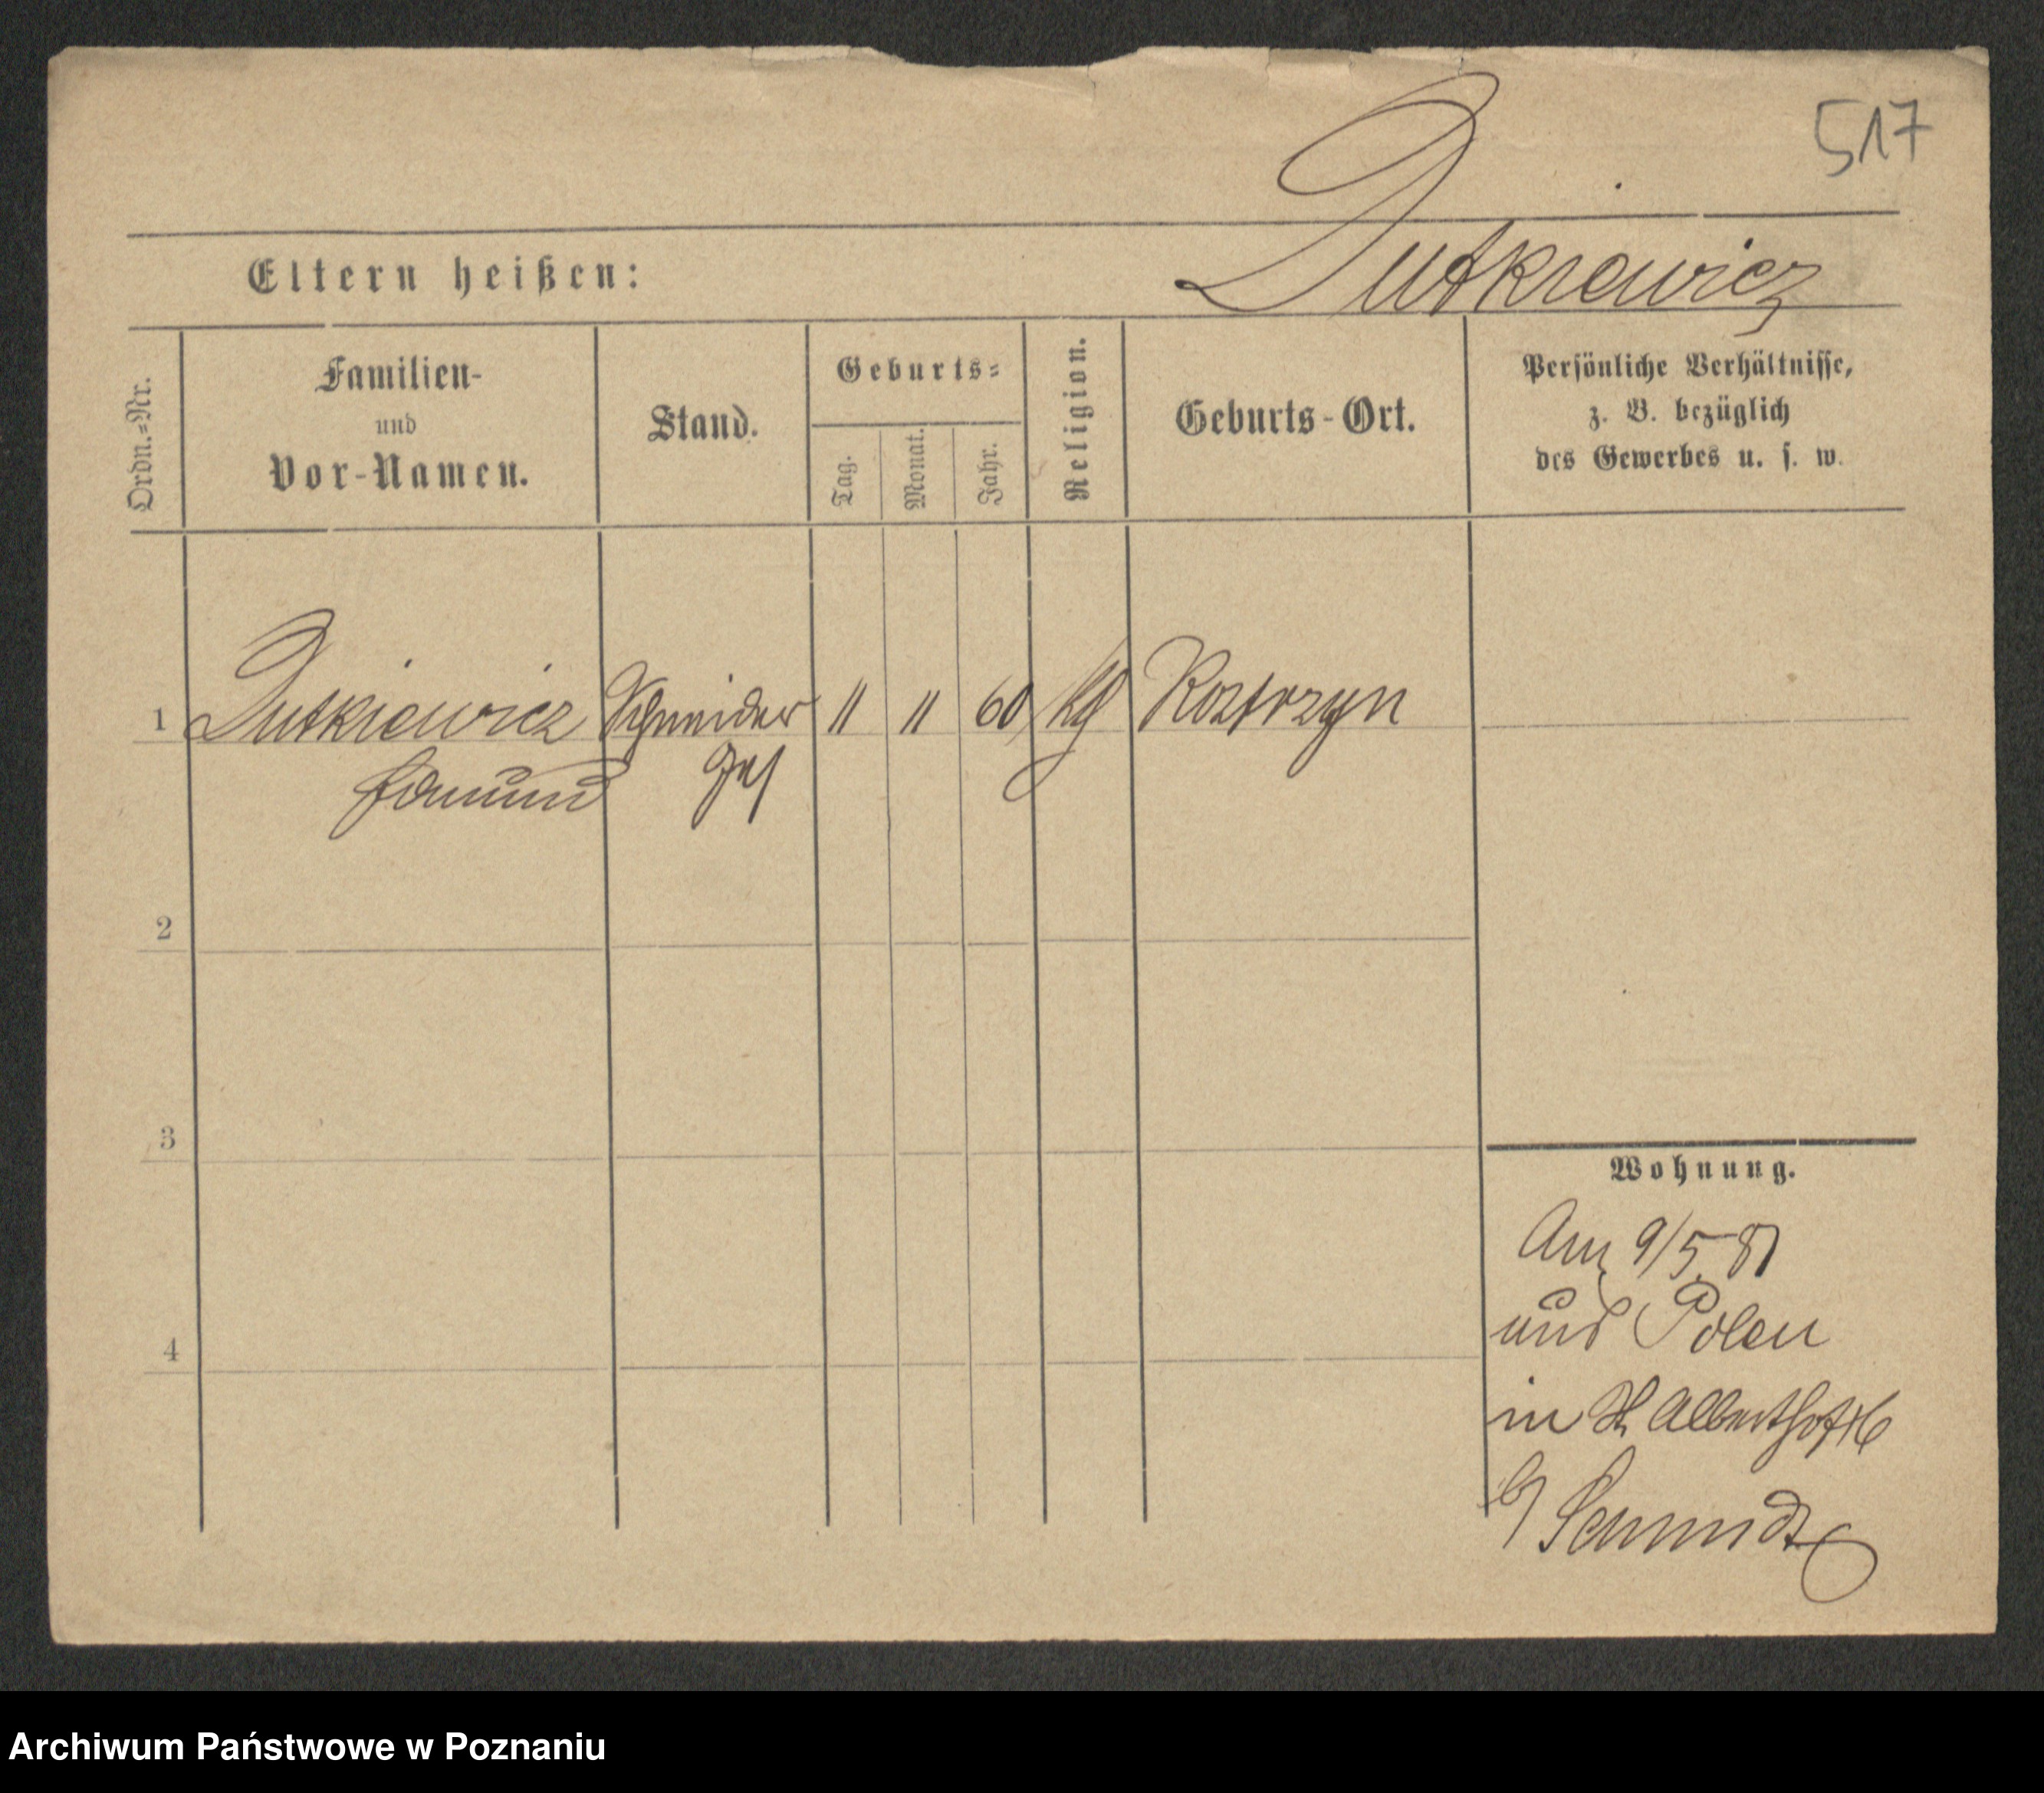 517
Dutkiewicz
Eltern heißen:
Ordn.=Nr.
Familien-
und
Vor-Namen.
Stand.
Geburts=
Tag.
Monat.
Jahr.
Religion.
Geburts-Ort.
Persönliche Verhältnisse,
z. B. bezüglich
des Gewerbes u. s. w.
1 Dutkiewicz Schneider 11 11 60 Kostrzyn
Edmund Ges
2
3
4
Wohnung.
Am 9/5 81
und Polen
in St Alberthof 16
b/ Schmidt
Archiwum Państwowe w Poznaniu